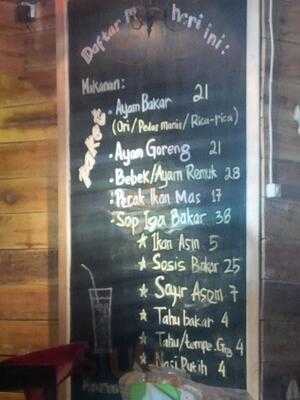 Daftar hari ini :
Makanan :
Paket
• Ayam Bakar 21
(Ori / Pedas Manis / Rica-rica)
• Ayam Goreng 21
• Bebek/Ayam Remuk 28
• Pecak Ikan Mas 17
• Sop Iga Bakar 38
★ Ikan Asin 5
★ Sosis Bakar 25
★ Sayur Asem 7
★ Tahu bakar 4
★ Tahu/tempe Grg 4
★ Nasi Putih 4